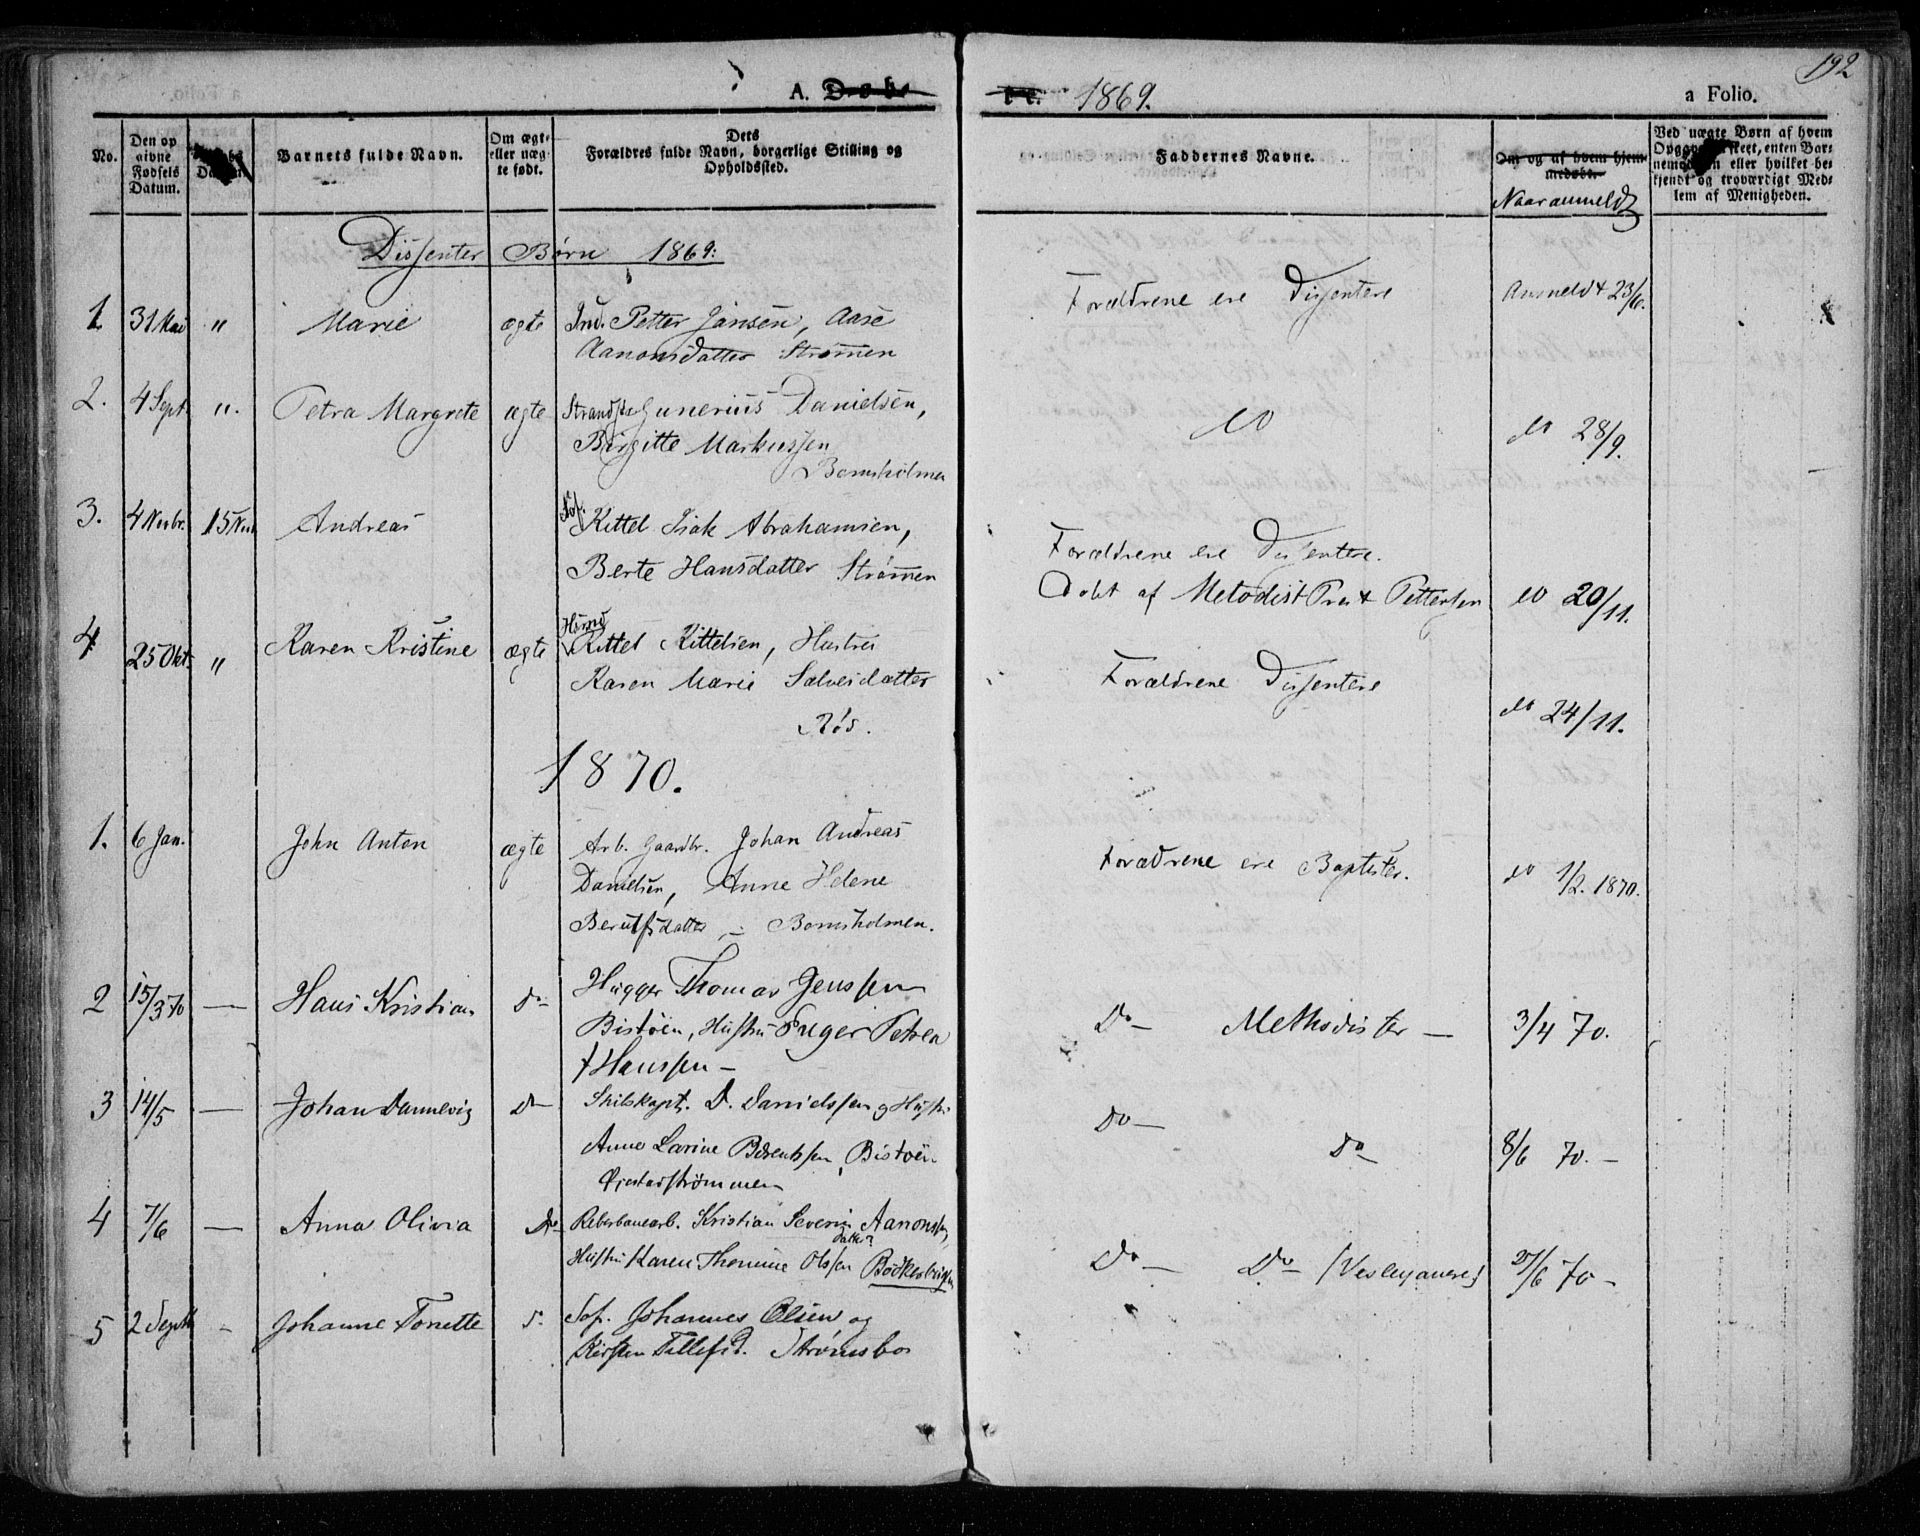 192
A. Døbte. 1869. a Folio.
No.
Den opgivne Fødsels Datum.
Barnets fulde Navn.
Om ægte eller uægte født.
Dets Forældres fulde Navn, borgerlige Stilling og Opholdssted.
Faddernes Navne.
Om og af hvem hjemmedøbt.
Naar anmeldt
Ved uægte Børn af hvem Opgaven er skeet, enten Barnemoderen eller hvilket bekjendt og troværdigt Medlem af Menigheden.
Dissenter Børn 1869:
1. 31 Mai " Marie ægte Ind. Petter Jansen, Aase Forældrene ere Dissentere Anmeldt 23/6.
Aanonsdatter Strømmen
2. 4 Sept. ". Petra Margrete ægte Strands. Gunerius Danielsen, do do 28/9.
Birgitte Markussen
Bomsholmen
3. 4 Novbr. 15 Nov. Andreas Søf. Kittel Isak Abrahamsen, Forældrene ere Dissentere.
Berte Hansdatter Strømmen Døbt af Metodist Præst Pettersen do 20/11.
4 25 Okt. " Karen Kristine ægte Hsmd Kittel Kittelsen, Hustru Forældrene Dissentere do 24/11.
Karen Marie Salvesdatter
Røs.
1870.
1. 6 Jan. John Anton ægte Arb. Gaardbr. Johan Andreas Forældrene ere Baptister. do 1/2. 1870.
Danielsen, Anne Helene
Berulfsdatter, – Bomsholmen.
2 15/3 70 — Hans Kristian Do Hugger Thomas Jenssen Do — Methodister — 3/4 70.
Bistøen, Hustru Inger Petrea
Hanssen —
3 14/5 — Johan Dannevig Do Skibskapt. D. Danielssen og Hustru Do — Do 8/6 70. —
Anne Larine Berentssen, Bistøen
Øiestadstrømmen
4 7/6 — Anna Olivia Do Reberbanearb. Kristian Severin Aanonsen, Do — Do — (Vesleyanere) 27/6 70 —
datter?
Hustru Karen Thomine Olssen Bødkerbugten
5 2 Septb - Johanne Tonette D. Søf. Johannes Olsen og
Kirsten Tellefsd. Strømsbo